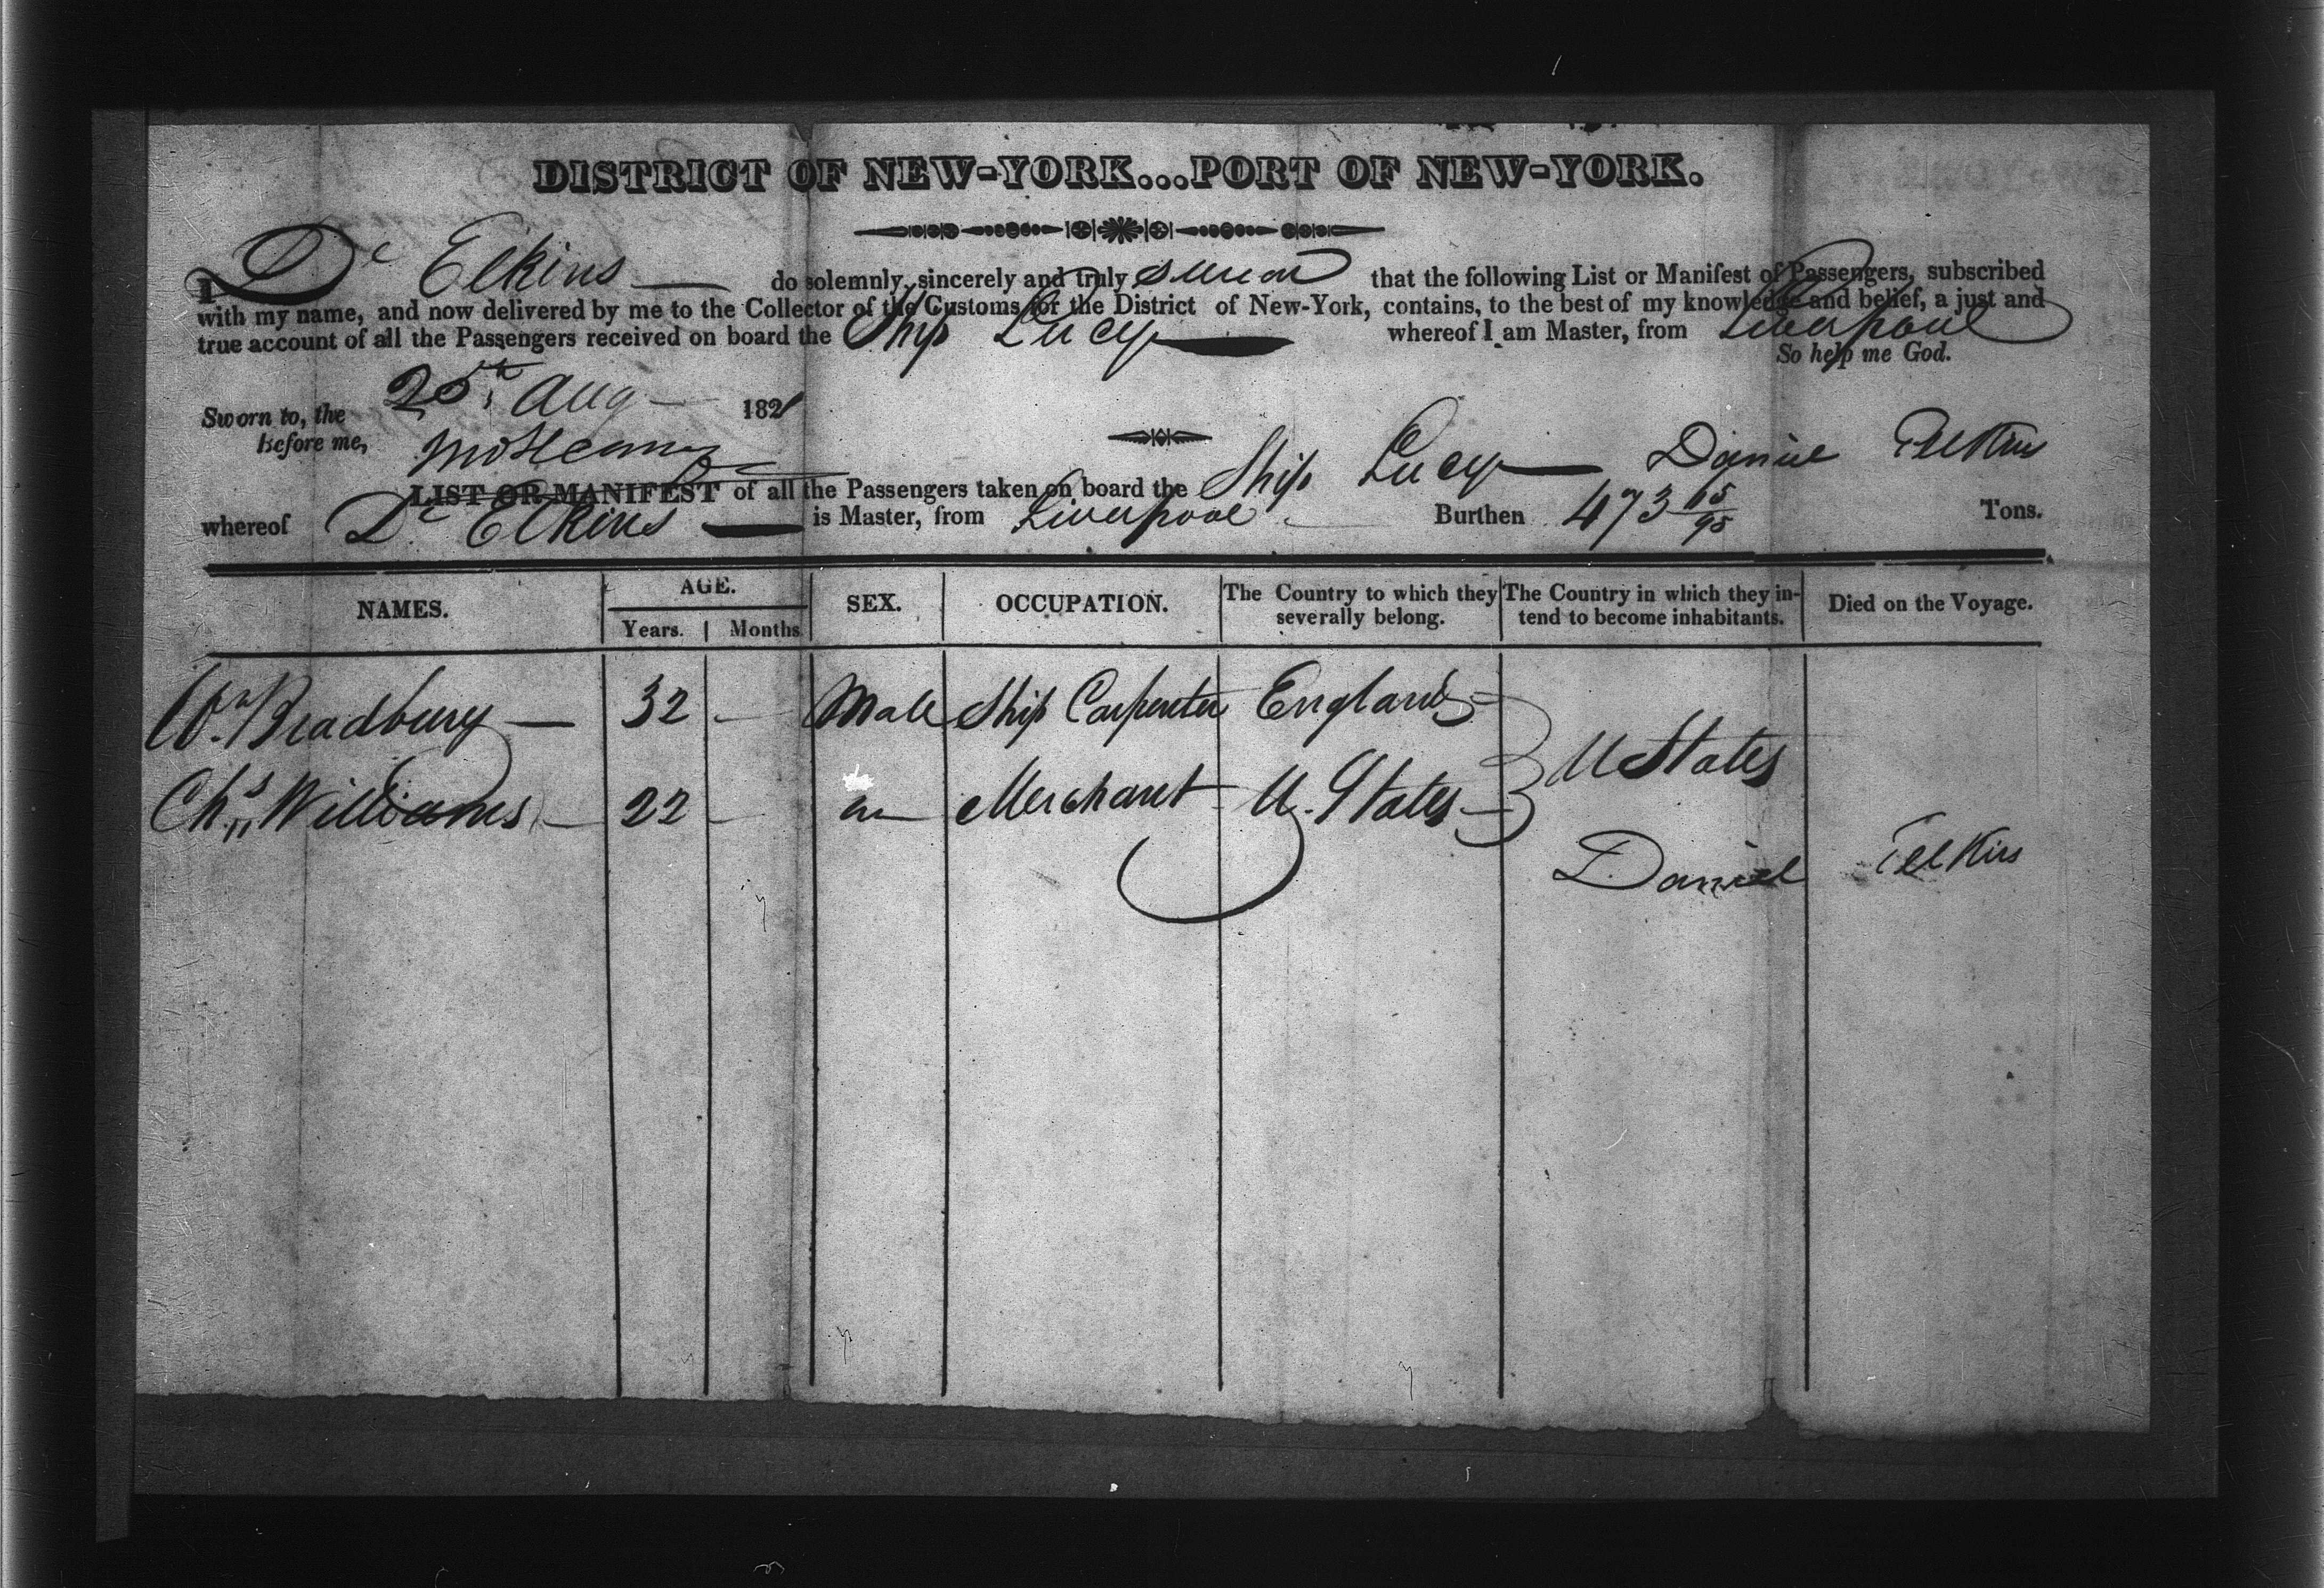 DISTRICT OF NEW-YORK...PORT OF NEW-YORK.
I Dl Elkins do solemnly, sincerely and truly swear that the following List or Manifest of Passengers, subscribed
with my name, and now delivered by me to the Collector of the Customs for the District of New-York, contains, to the best of my knowledge and belief, a just and
true account of all the Passengers received on board the Ship Lucy whereof I am Master, from Liverpool
So help me God.
Sworn to, the 25th Aug 1821
Before me,
Daniel Elkins
LIST OR MANIFEST of all the Passengers taken on board the Ship Lucy
whereof Dl Elkins is Master, from Liverpool Burthen 473 Tons.
NAMES. AGE. SEX. OCCUPATION. The Country to which they severally belong. The Country in which they intend to become inhabitants. Died on the Voyage.
Years. Months
Wm Bradbury 32 Male Ship Carpenter England
U States
Chs Williams 22 Merchant U. States
Daniel Elkins